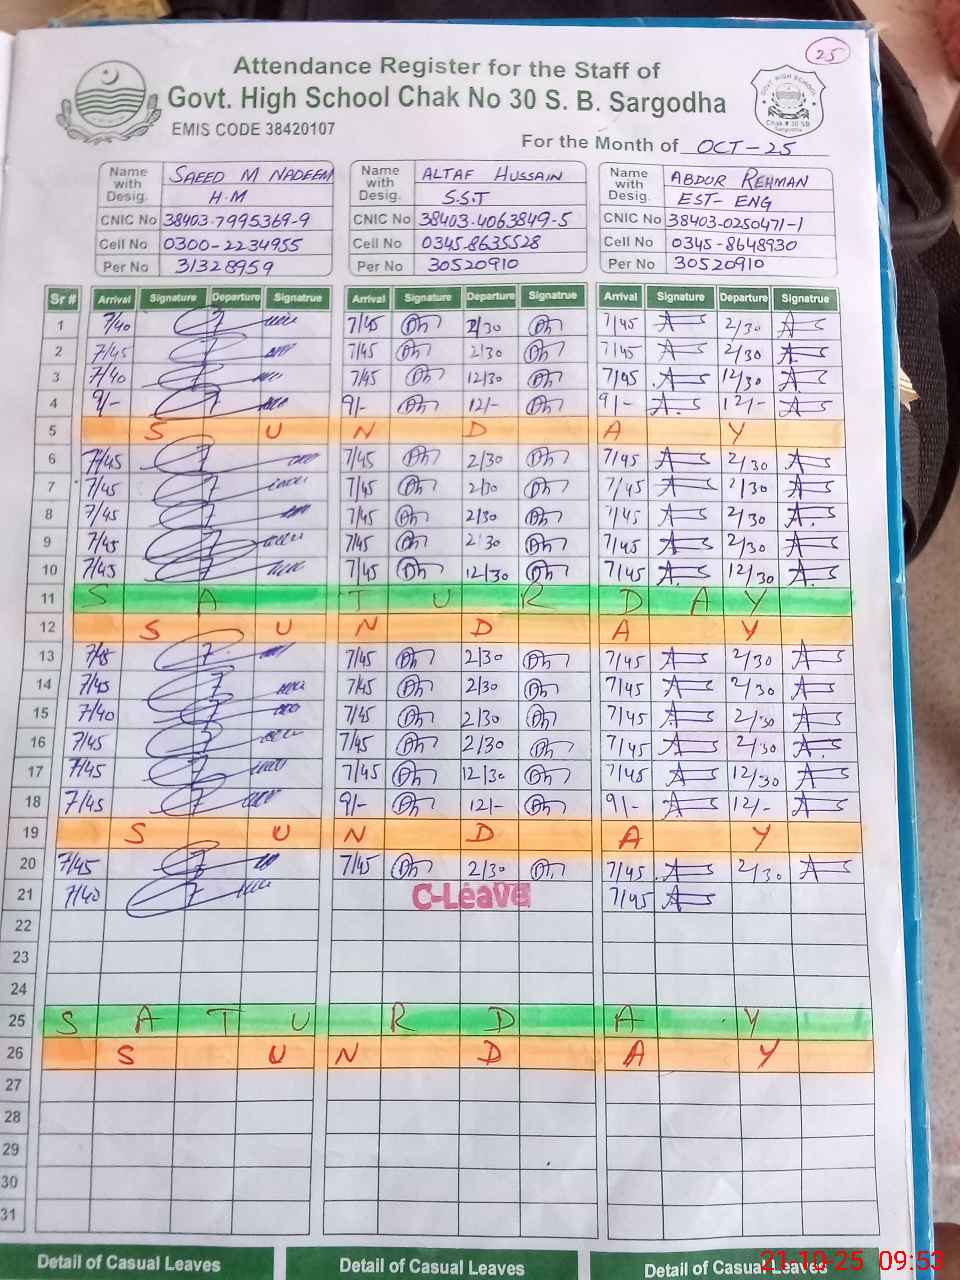 25
Attendance Register for the Staff of
Govt. High School Chak No 30 S. B. Sargodha
EMIS CODE 38420107
GOVT. HIGH SCHOOL
Chak # 30 SB
Sargodha
For the Month of OCT-25
Name with Desig. SAEED M NADEEM H.M
CNIC No 38403-7995369-9
Cell No 0300-2234955
Per No 31328959
Name with Desig. ALTAF HUSSAIN S.S.T
CNIC No 38403-4063849-5
Cell No 0345-8635528
Per No 30520910
Name with Desig. ABDUR REHMAN EST-ENG
CNIC No 38403-0250471-1
Cell No 0345-8648930
Per No 30520910
Sr # Arrival Signature Departure Signatrue Arrival Signature Departure Signatrue Arrival Signature Departure Signatrue
1 7/40 7/45 2/30 7/45 2/30
2 7/45 7/45 2/30 7/45 2/30
3 7/40 7/45 12/30 7/45 12/30
4 9/- 9/- 12/- 9/- 12/-
5 S U N D A Y
6 7/45 7/45 2/30 7/45 2/30
7 7/45 7/45 2/30 7/45 2/30
8 7/45 7/45 2/30 7/45 2/30
9 7/45 7/45 2/30 7/45 2/30
10 7/45 7/45 12/30 7/45 12/30
11 S A T U R D A Y
12 S U N D A Y
13 7/45 7/45 2/30 7/45 2/30
14 7/45 7/45 2/30 7/45 2/30
15 7/40 7/45 2/30 7/45 2/30
16 7/45 7/45 2/30 7/45 2/30
17 7/45 7/45 12/30 7/45 12/30
18 7/45 9/- 12/- 9/- 12/-
19 S U N D A Y
20 7/45 7/45 2/30 7/45 2/30
21 7/40 C-Leave 7/45
22
23
24
25 S A T U R D A Y
26 S U N D A Y
27
28
29
30
31
Detail of Casual Leaves Detail of Casual Leaves Detail of Casual Leaves
21-10-25 09:53